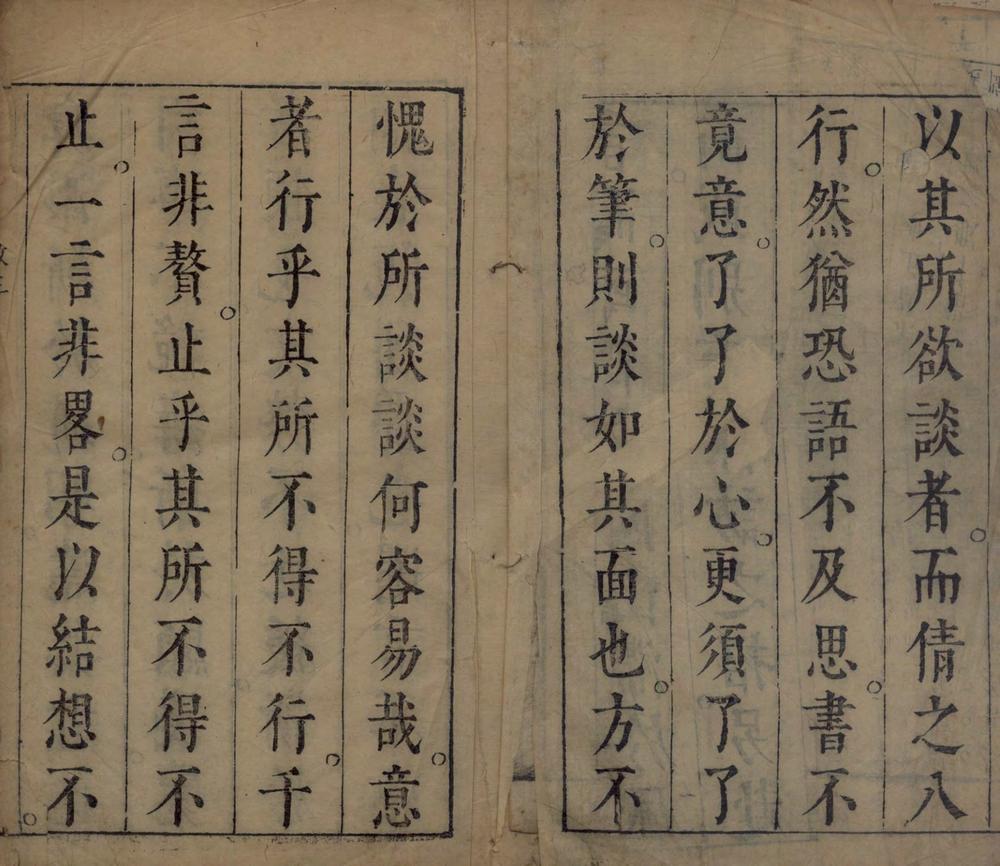 以其所欲談者。而倩之八
行。然猶恐語不及思。書不
竟意。了了於心。更須了了
於筆。則談如其面也。方不
愧於所談談何容易哉。意
者行乎其所不得不行。千
言非贅。止乎其所不得不
止。一言非畧。是以結想不。